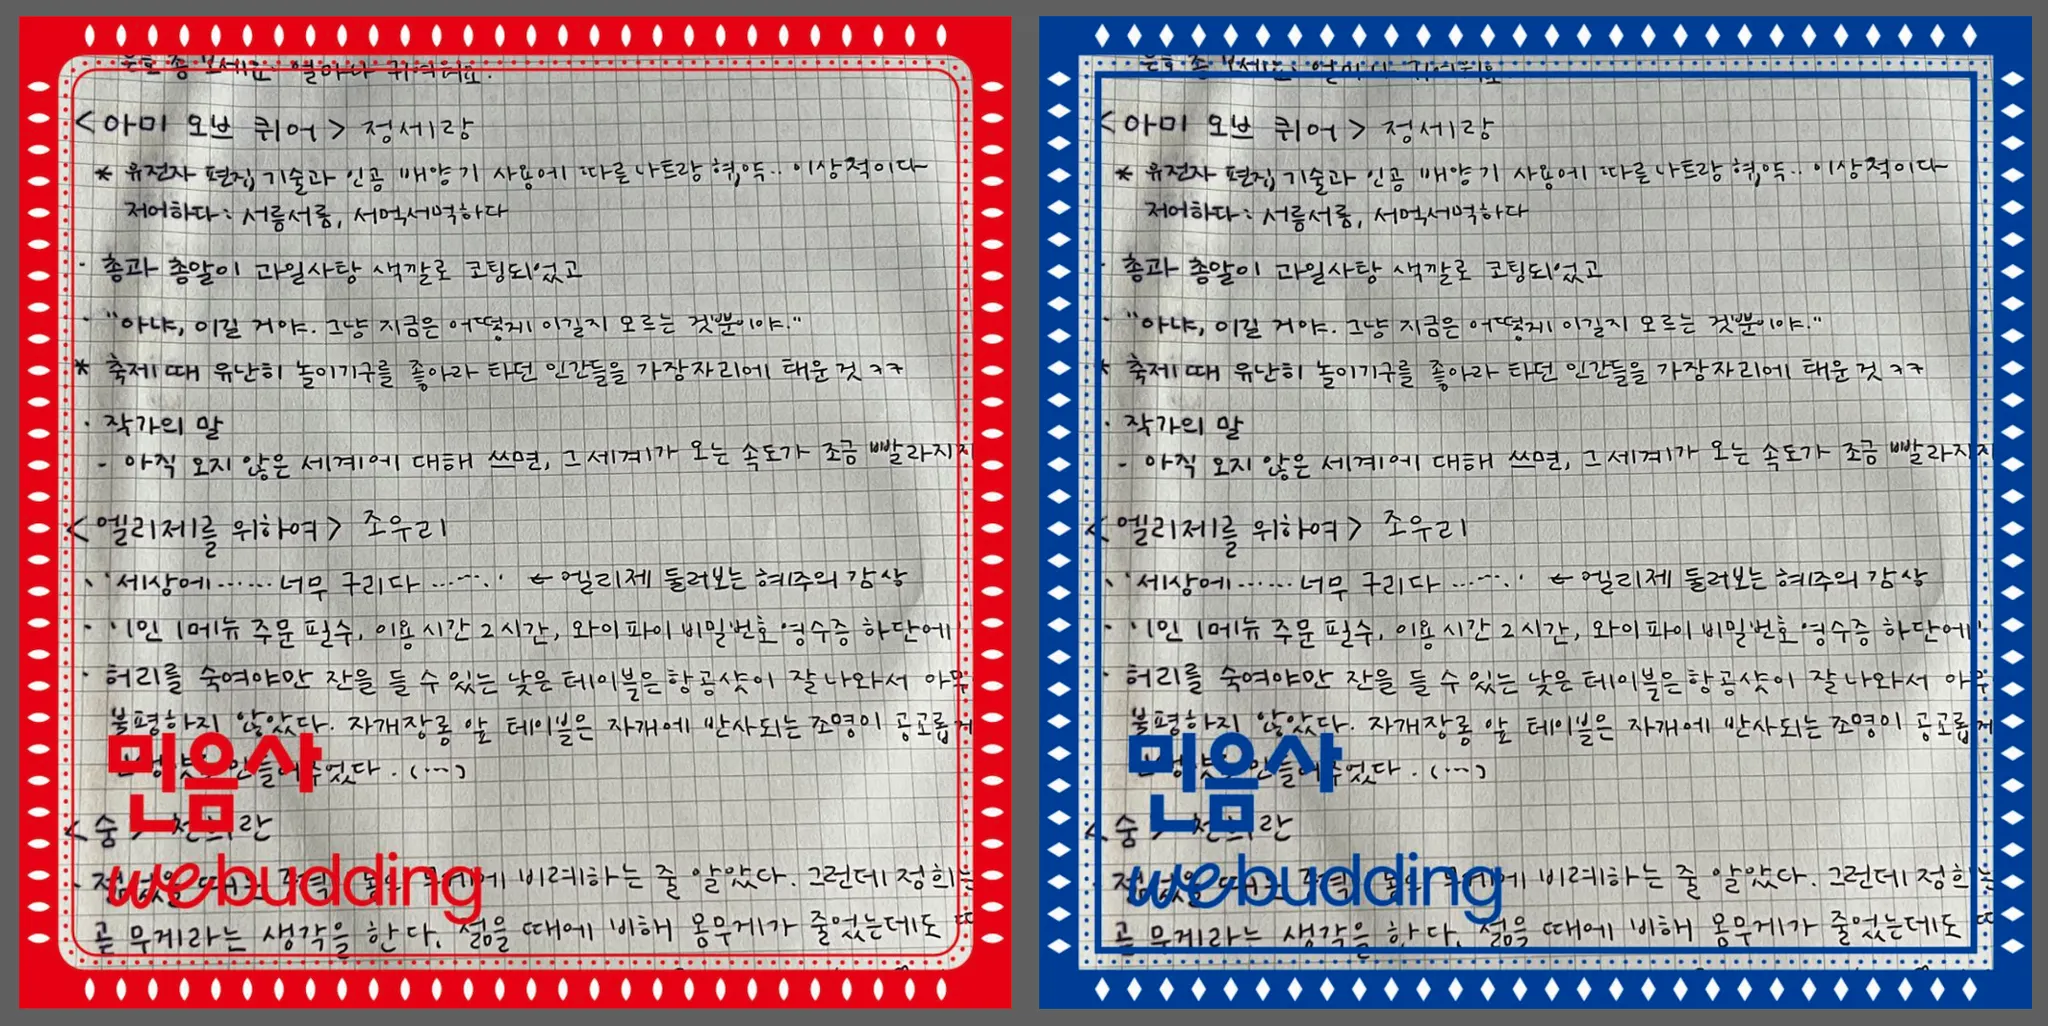 얼마나 귀여워요.
<아미 오브 퀴어> 정세랑
* 유전자 편집 기술과 인공 배양기 사용에 따를 나트랑 협약.. 이상적이다
저어하다: 서름서름, 서먹서먹하다
· 총과 총알이 과일사탕 색깔로 코팅되었고
· "아냐, 이길 거야. 그냥 지금은 어떻게 이길지 모르는 것뿐이야."
* 축제 때 유난히 놀이기구를 좋아라 타던 인간들을 가장자리에 태운 것 ㅋㅋ
· 작가의 말
- 아직 오지 않은 세계에 대해 쓰면, 그 세계가 오는 속도가 조금 빨라지지
<엘리제를 위하여> 조우리
· '세상에...... 너무 구리다 ......' ← 엘리제 둘러보는 혜주의 감상
· '1인 1메뉴 주문 필수, 이용 시간 2시간, 와이파이 비밀번호 영수증 하단에'
· 허리를 숙여야만 잔을 들 수 있는 낮은 테이블은 항공샷이 잘 나와서 아무
불평하지 않았다. 자개장롱 앞 테이블은 자개에 반사되는 조명이 공교롭게
만들어주었다. (...)
<숨> 천희란
민음사
webudding
비례하는 줄 알았다. 그런데 정희는
곧 무게라는 생각을 한다. 젊을 때에 비해 몸무게가 줄었는데도
얼마나 귀여워요
<아미 오브 퀴어> 정세랑
* 유전자 편집 기술과 인공 배양기 사용에 따를 나트랑 협약.. 이상적이다
저어하다: 서름서름, 서먹서먹하다
· 총과 총알이 과일사탕 색깔로 코팅되었고
· "아냐, 이길 거야. 그냥 지금은 어떻게 이길지 모르는 것뿐이야."
* 축제 때 유난히 놀이기구를 좋아라 타던 인간들을 가장자리에 태운 것 ㅋㅋ
· 작가의 말
- 아직 오지 않은 세계에 대해 쓰면, 그 세계가 오는 속도가 조금 빨라지지
<엘리제를 위하여> 조우리
· '세상에...... 너무 구리다 ......' ← 엘리제 둘러보는 혜주의 감상
· '1인 1메뉴 주문 필수, 이용 시간 2시간, 와이파이 비밀번호 영수증 하단에'
· 허리를 숙여야만 잔을 들 수 있는 낮은 테이블은 항공샷이 잘 나와서 아무
불평하지 않았다. 자개장롱 앞 테이블은 자개에 반사되는 조명이 공교롭게
만들어주었다. (...)
<숨> 천희란
민음사
webudding
비례하는 줄 알았다. 그런데 정희는
곧 무게라는 생각을 한다. 젊을 때에 비해 몸무게가 줄었는데도